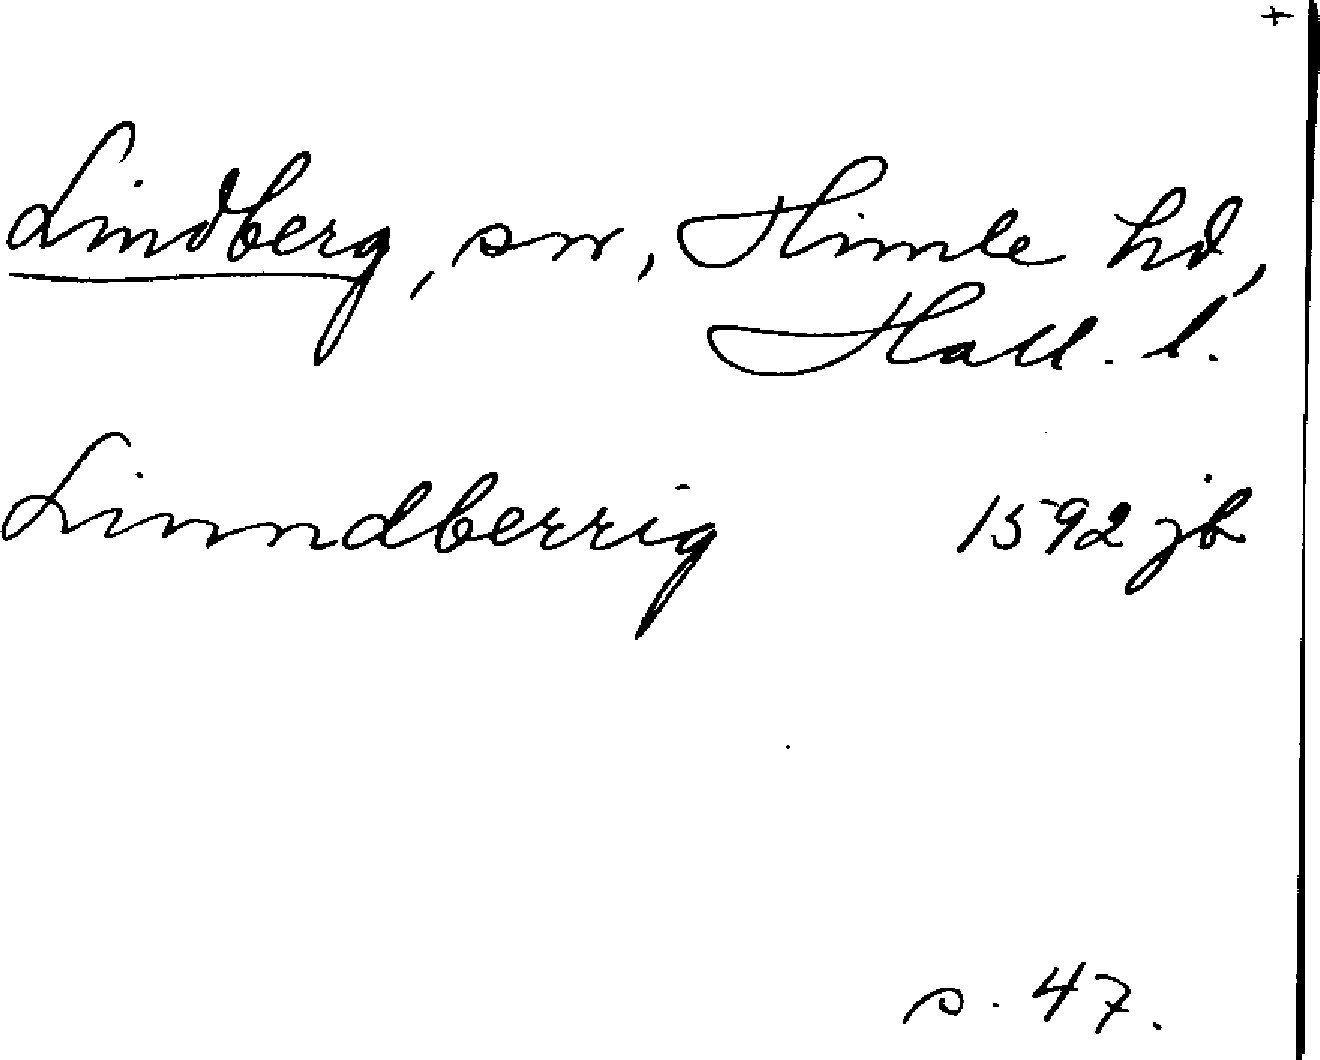 +
Lindberg, sn, Himle hd,
Hall. l.
Linndberrig 1592 jb
s. 47.